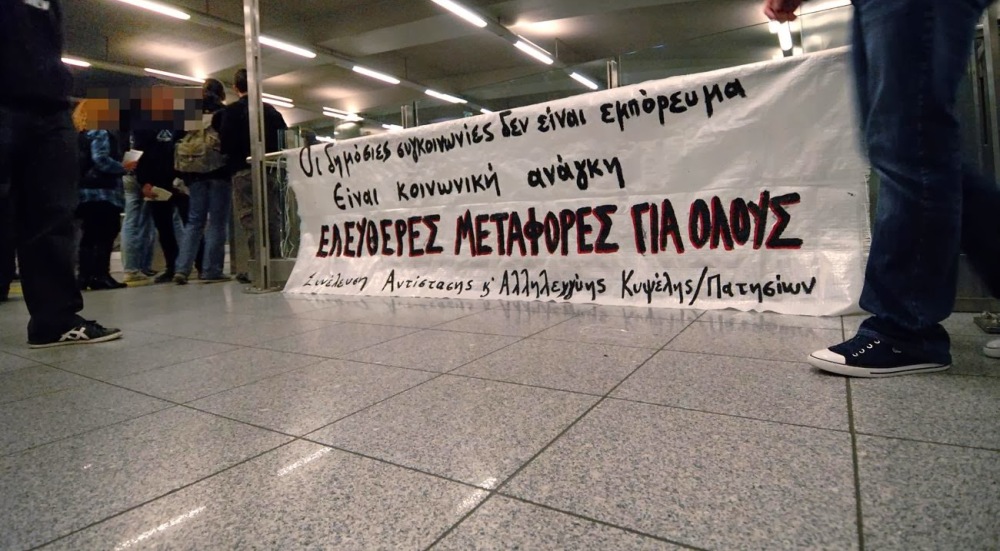 Οι δημόσιες συγκοινωνίες δεν είναι εμπόρευμα
Είναι κοινωνική ανάγκη
ΕΛΕΥΘΕΡΕΣ ΜΕΤΑΦΟΡΕΣ ΓΙΑ ΟΛΟΥΣ
Συνέλευση Αντίστασης κ' Αλληλεγγύης Κυψέλης/Πατησίων